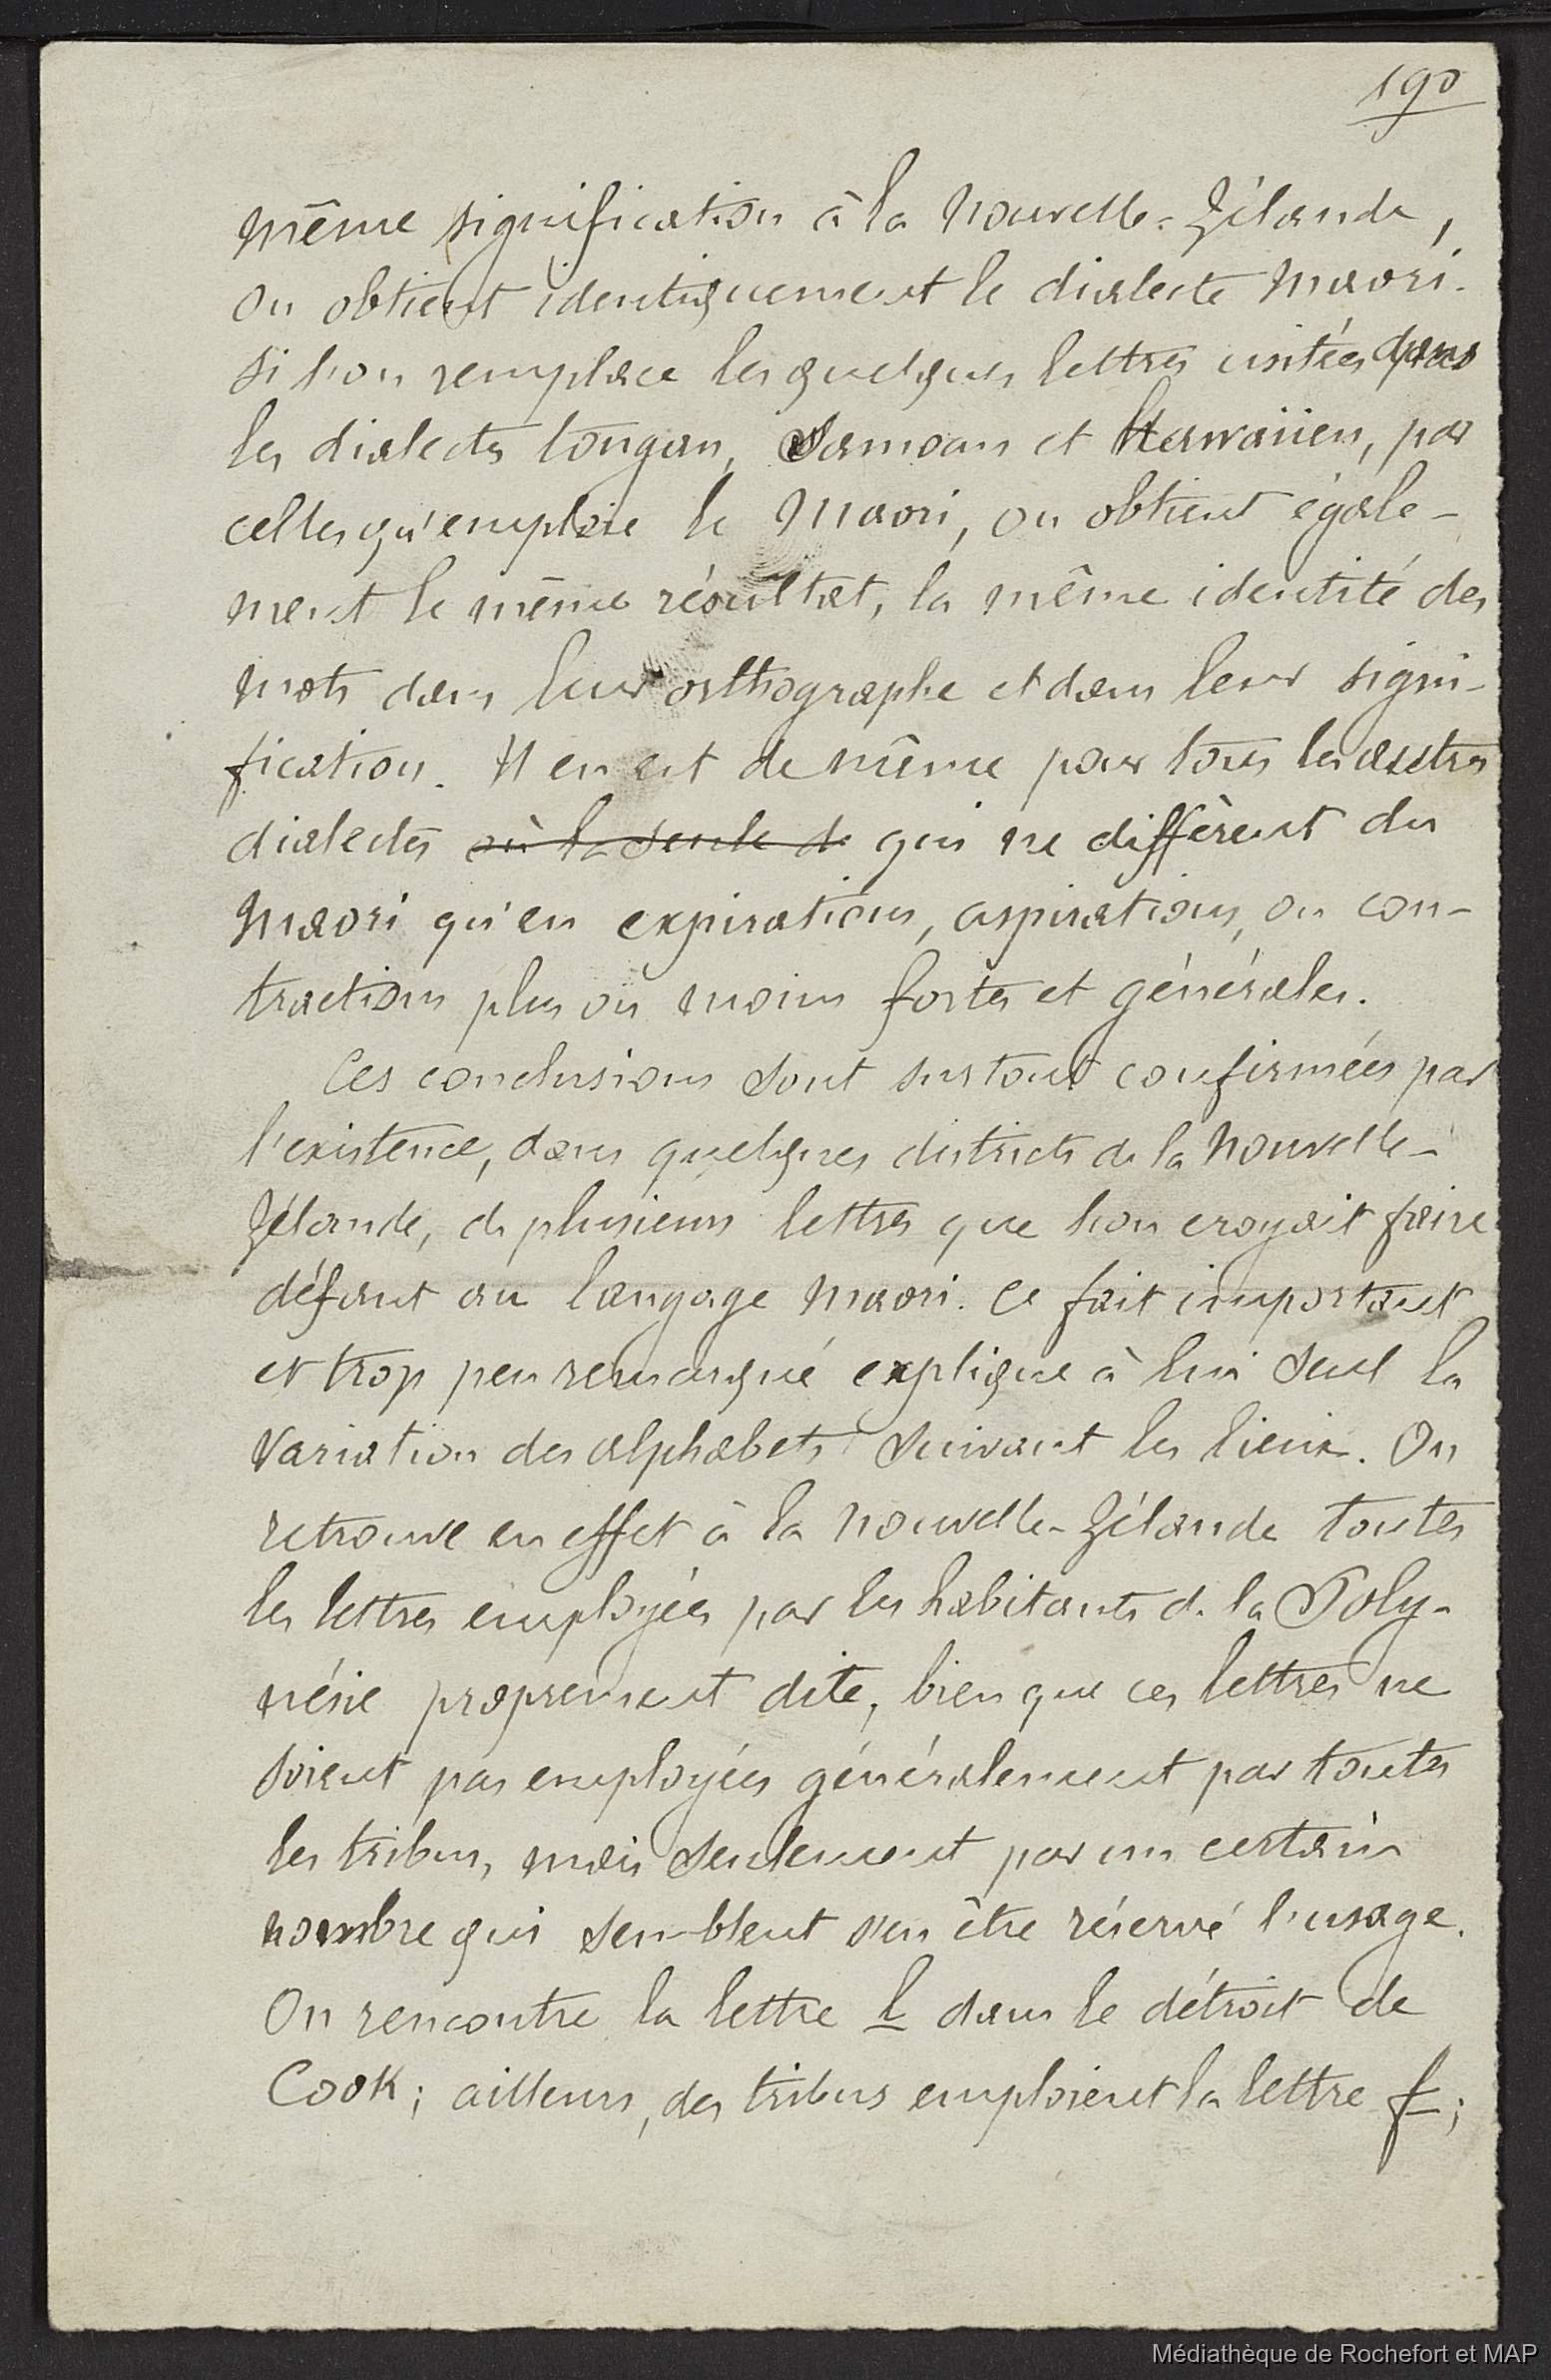 190
même signification à la Nouvelle-Zélande,
on obtient identiquement le dialecte Maori.
Si l'on remplace les quelques lettres usitées dans
les dialectes tongan, Samoan et Hawaiien, par
celles qu'emploie le Maori, on obtient égale-
ment le même résultat, la même identité des
mots dans leur orthographe et dans leur signi-
fication. Il en est de même pour tous les autres
dialectes où la seule d qui ne diffèrent du
Maori qu'en expirations, aspirations, ou con-
tractions plus ou moins fortes et générales.
Ces conclusions sont surtout confirmées par
l'existence, dans quelques districts de la Nouvelle-
Zélande, de plusieurs lettres que l'on croyait faire
défaut au langage Maori. Ce fait important
et trop peu remarqué explique à lui seul la
variation des alphabets suivant les lieux. On
retrouve en effet à la Nouvelle-Zélande toutes
les lettres employées par les habitants de la Poly-
nésie proprement dite, bien que ces lettres ne
soient pas employées généralement par toutes
les tribus, mais seulement par un certain
nombre qui semblent s'en être réservé l'usage.
On rencontre la lettre l dans le détroit de
Cook; ailleurs, des tribus emploient la lettre f;
Médiathèque de Rochefort et MAP